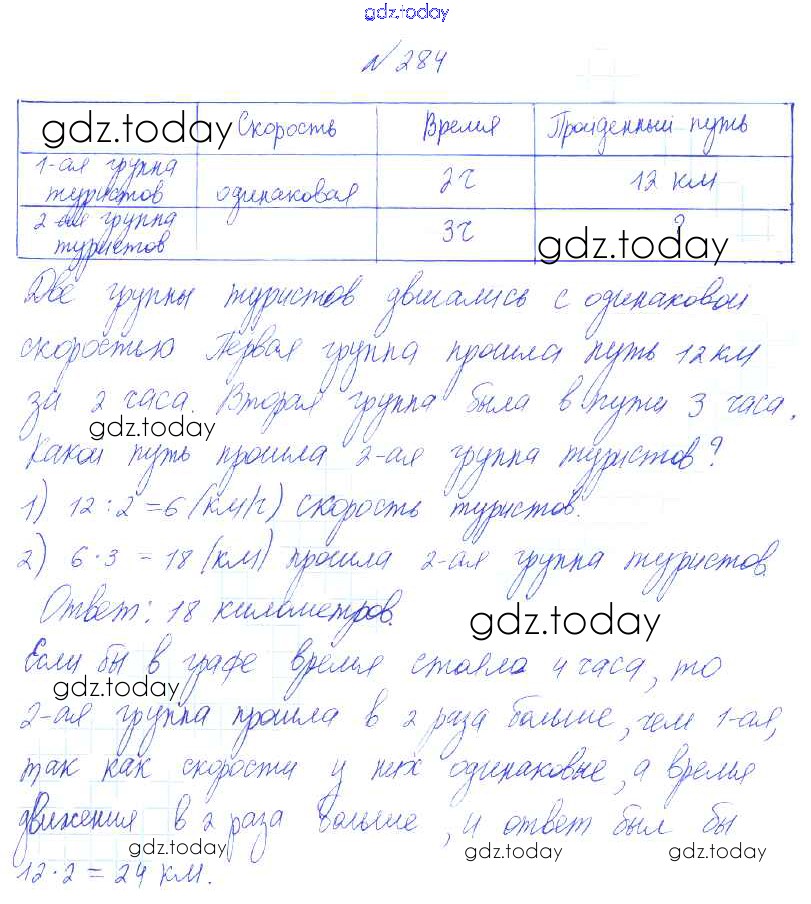 gdz.today
№ 284
gdz.today Скорость Время Пройденный путь
1-ая группа туристов одинаковая 2ч 12 км
2-ая группа туристов 3ч ?
gdz.today
Две группы туристов двигались с одинаковой
скоростью Первая группа прошла путь 12 км
за 2 часа. Вторая группа была в пути 3 часа.
gdz.today
Какой путь прошла 2-ая группа туристов?
1) 12 : 2 = 6 (км/ч) скорость туристов.
2) 6 · 3 = 18 (км) прошла 2-ая группа туристов.
Ответ: 18 километров.
gdz.today
Если бы в графе время стояло 4 часа, то
gdz.today
2-ая группа прошла в 2 раза больше, чем 1-ая,
так как скорости у них одинаковые, а время
движения в 2 раза больше, и ответ был бы
gdz.today gdz.today gdz.today
12 · 2 = 24 км.